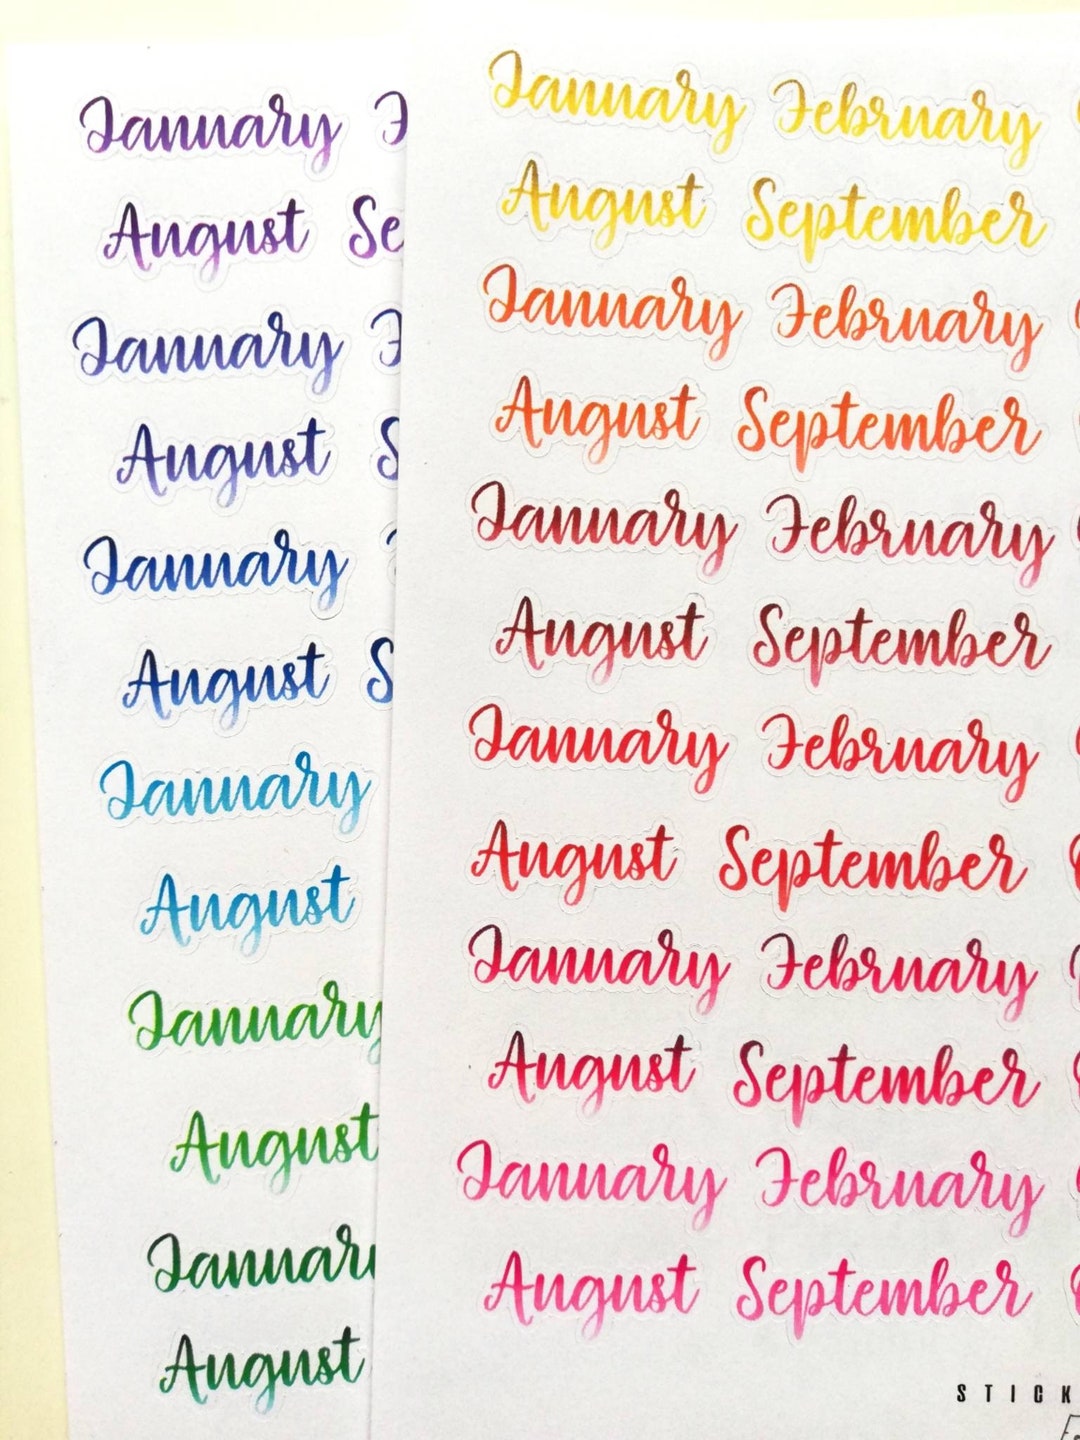 January
August
January
August
January
August
January
August
January
August
January
August
January February
August September
January February
August September
January February
August September
January February
August September
January February
August September
January February
August September